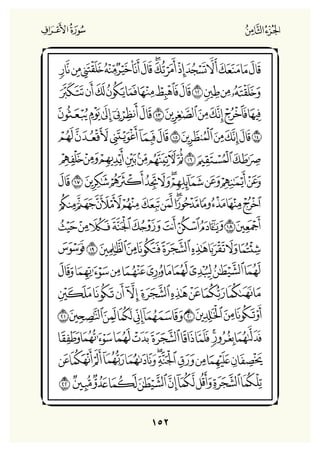 الجُزْءُ الثَّامِنُ سُورَةُ الأَعْرَافِ
قَالَ مَا مَنَعَكَ أَلَّا تَسْجُدَ إِذْ أَمَرْتُكَ ۖ قَالَ أَنَا۠ خَيْرٌ مِّنْهُ خَلَقْتَنِى مِن نَّارٍ
وَخَلَقْتَهُۥ مِن طِينٍ ١٢ قَالَ فَٱهْبِطْ مِنْهَا فَمَا يَكُونُ لَكَ أَن تَتَكَبَّرَ
فِيهَا فَٱخْرُجْ إِنَّكَ مِنَ ٱلصَّٰغِرِينَ ١٣ قَالَ أَنظِرْنِىٓ إِلَىٰ يَوْمِ يُبْعَثُونَ
١٤ قَالَ إِنَّكَ مِنَ ٱلْمُنظَرِينَ ١٥ قَالَ فَبِمَآ أَغْوَيْتَنِى لَأَقْعُدَنَّ لَهُمْ
صِرَٰطَكَ ٱلْمُسْتَقِيمَ ١٦ ثُمَّ لَءَاتِيَنَّهُم مِّنۢ بَيْنِ أَيْدِيهِمْ وَمِنْ خَلْفِهِمْ
وَعَنْ أَيْمَٰنِهِمْ وَعَن شَمَآئِلِهِمْ ۖ وَلَا تَجِدُ أَكْثَرَهُمْ شَٰكِرِينَ ١٧ قَالَ
ٱخْرُجْ مِنْهَا مَذْءُومًا مَّدْحُورًا ۖ لَّمَن تَبِعَكَ مِنْهُمْ لَأَمْلَأَنَّ جَهَنَّمَ مِنكُمْ
أَجْمَعِينَ ١٨ وَيَٰٓـَٔادَمُ ٱسْكُنْ أَنتَ وَزَوْجُكَ ٱلْجَنَّةَ فَكُلَا مِنْ حَيْثُ
شِئْتُمَا وَلَا تَقْرَبَا هَٰذِهِ ٱلشَّجَرَةَ فَتَكُونَا مِنَ ٱلظَّٰلِمِينَ ١٩ فَوَسْوَسَ
لَهُمَا ٱلشَّيْطَٰنُ لِيُبْدِىَ لَهُمَا مَا وُۥرِىَ عَنْهُمَا مِن سَوْءَٰتِهِمَا وَقَالَ
مَا نَهَىٰكُمَا رَبُّكُمَا عَنْ هَٰذِهِ ٱلشَّجَرَةِ إِلَّآ أَن تَكُونَا مَلَكَيْنِ
أَوْ تَكُونَا مِنَ ٱلْخَٰلِدِينَ ٢٠ وَقَاسَمَهُمَآ إِنِّى لَكُمَا لَمِنَ ٱلنَّٰصِحِينَ ٢١
فَدَلَّىٰهُمَا بِغُرُورٍ ۚ فَلَمَّا ذَاقَا ٱلشَّجَرَةَ بَدَتْ لَهُمَا سَوْءَٰتُهُمَا وَطَفِقَا
يَخْصِفَانِ عَلَيْهِمَا مِن وَرَقِ ٱلْجَنَّةِ ۖ وَنَادَىٰهُمَا رَبُّهُمَآ أَلَمْ أَنْهَكُمَا عَن
تِلْكُمَا ٱلشَّجَرَةِ وَأَقُل لَّكُمَآ إِنَّ ٱلشَّيْطَٰنَ لَكُمَا عَدُوٌّ مُّبِينٌ ٢٢
١٥٢